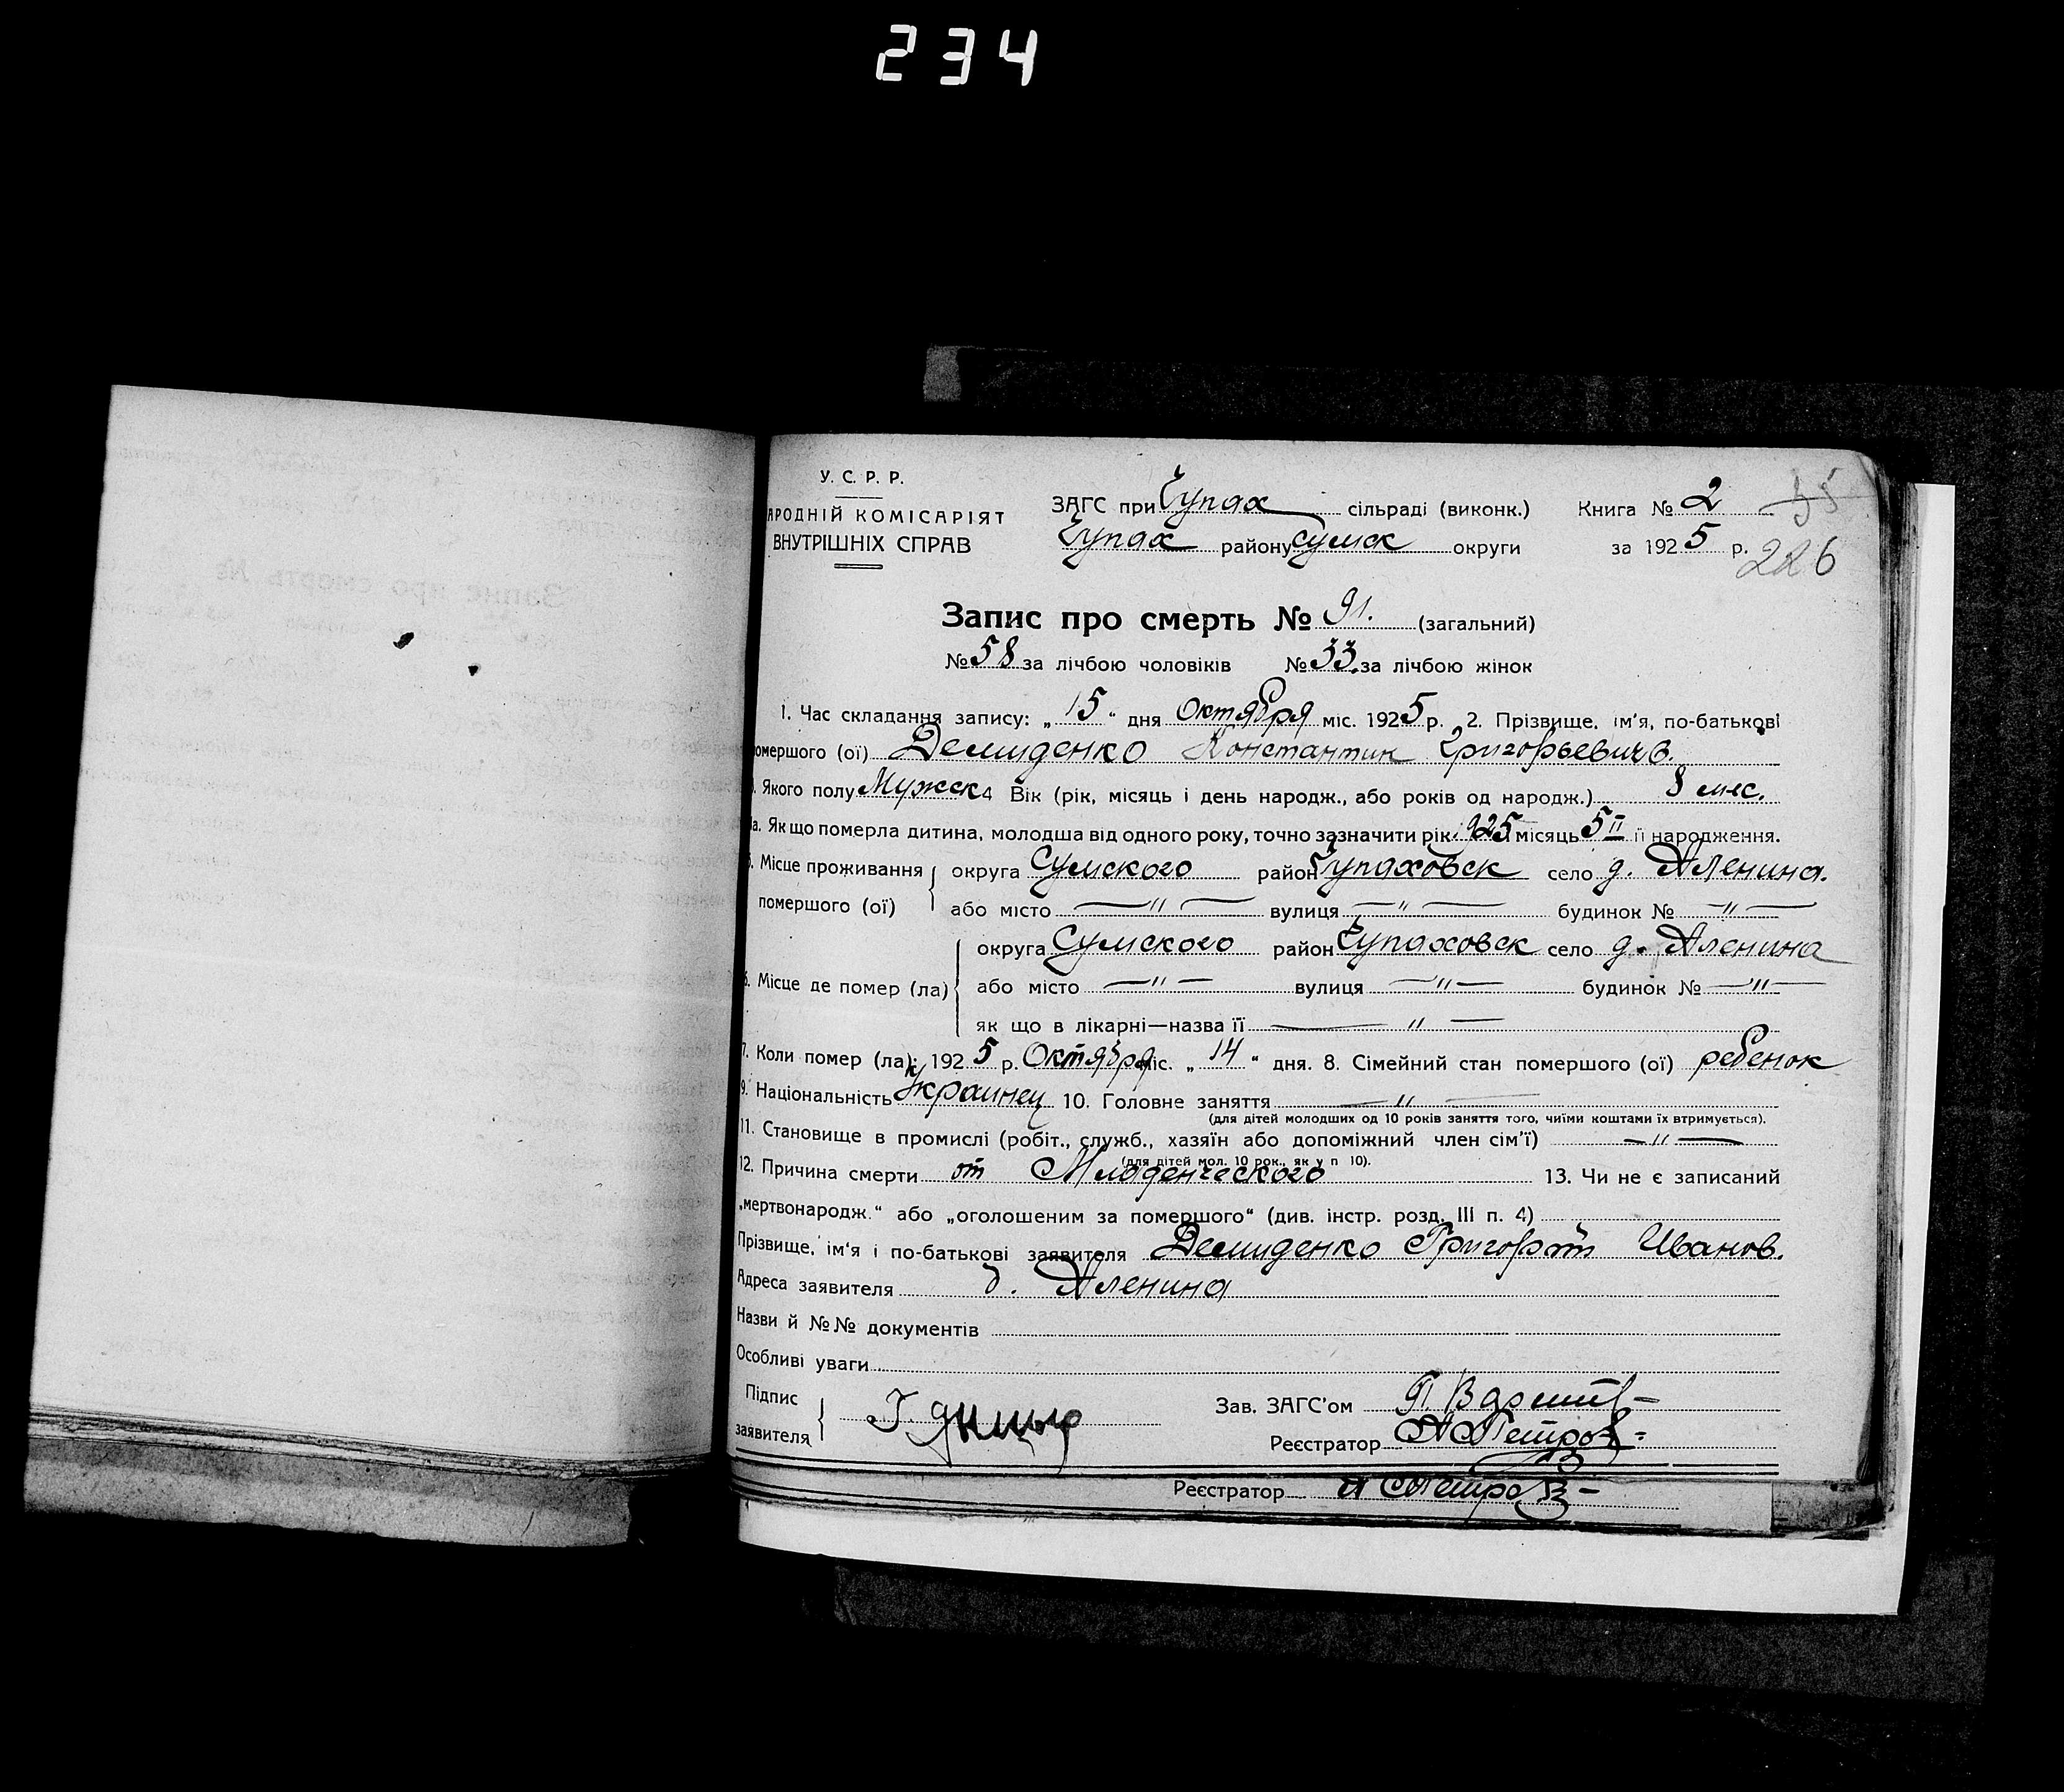 234
У. С. Р. Р.
АРОДНІЙ КОМІСАРІЯТ
ВНУТРІШНІХ СПРАВ
ЗАГС при Чупах сільраді (виконк.)
Чупах району Сумск округи
Книга № 2 35
за 1925 р.
226
Запис про смерть № 91. (загальний)
№ 58 за лічбою чоловіків № 33. за лічбою жінок
1. Час складання запису: „ 15 “ дня Октября міс. 1925 р. 2. Прізвище, ім'я, по-батькові
омершого (ої) Демиденко Константин Григорьевичв.
Якого полу Мужск 4 Вік (рік, місяць і день народж., або років од народж.) 8 мес.
а. Як що померла дитина, молодша від одного року, точно зазначити рік 1925 місяць 5 II її народження.
5. Місце проживання округа Сумского район Чупаховск село д. Аленина.
помершого (ої) або місто — " — вулиця — " — будинок № — " —
округа Сумского район Чупаховск село д. Аленина
6. Місце де помер (ла) або місто — " — вулиця — " — будинок № — " —
як що в лікарні—назва її — " —
7. Коли помер (ла): 1925 р. Октября міс. „ 14 “ дня. 8. Сімейний стан помершого (ої) ребенок
9. Національність Украинец 10. Головне заняття — " —
(для дітей молодших од 10 років заняття того, чиїми коштами їх втримується).
11. Становище в промислі (робіт., служб., хазяїн або допоміжний член сім'ї) — " —
(для дітей мол. 10 рок., як у п 10).
12. Причина смерти от Младенческого 13. Чи не є записаний
„мертвонародж.“ або „оголошеним за помершого“ (див. інстр. розд. III п. 4)
Прізвище, ім'я і по-батькові заявителя Демиденко Иванов.
Адреса заявителя д. Аленина
Назви й №№ документів
Особливі уваги
Підпис
заявителя
Зав. ЗАГС'ом
Реєстратор А Петров
Реєстратор А Петров